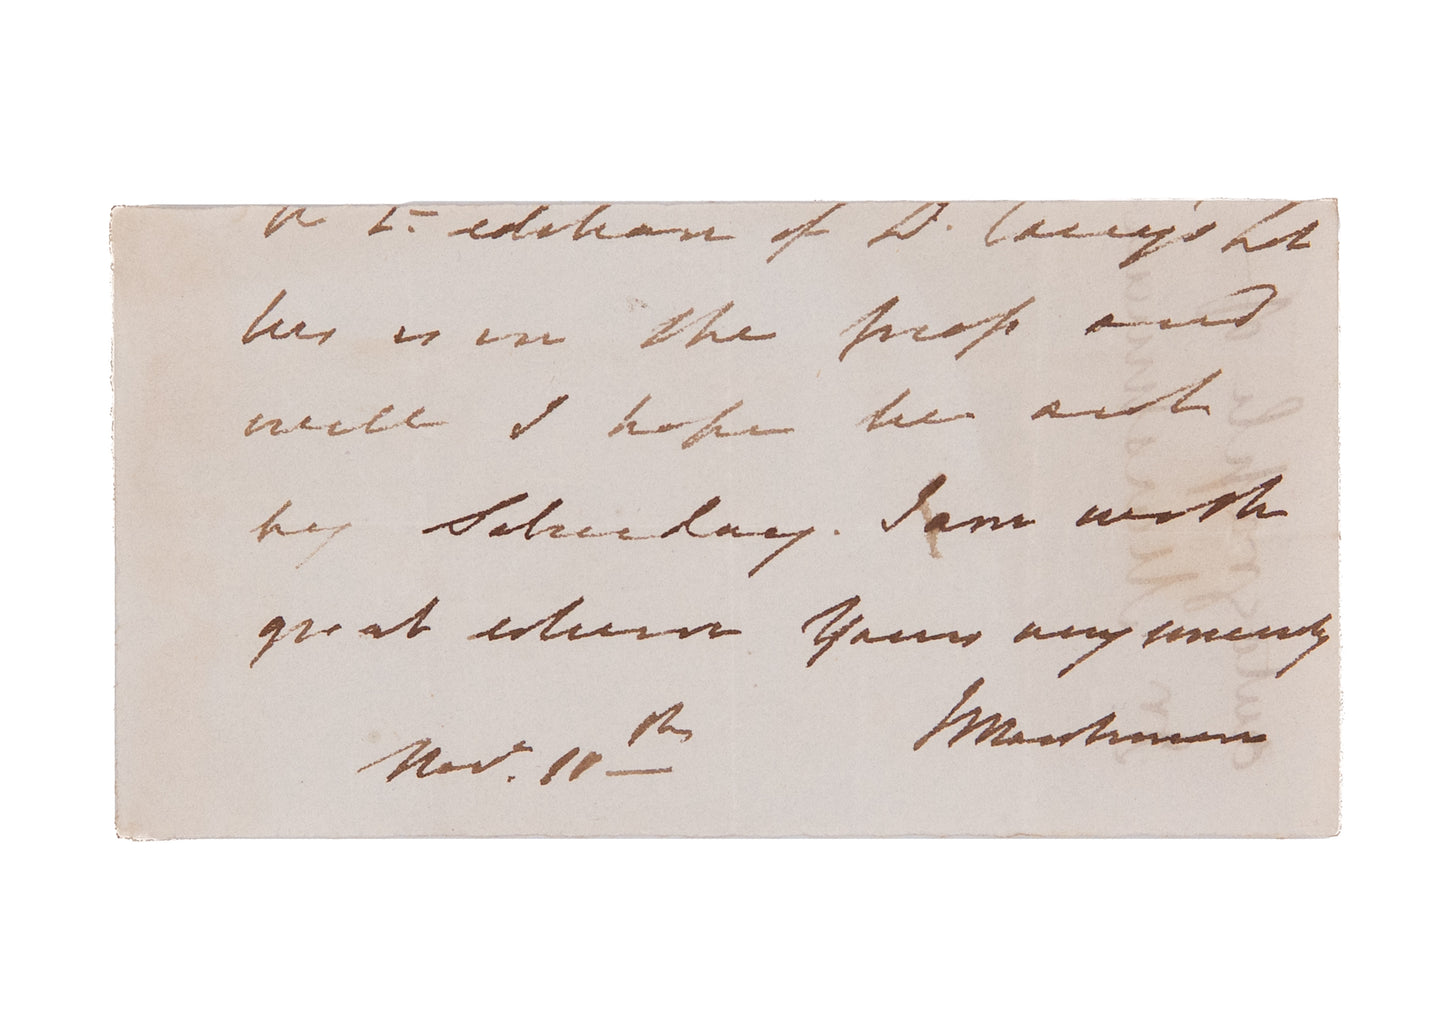 edition of D. Carey's Let
ters is in the press and
will I hope be out
by Saturday. I am with
great esteem Yours very sincerely
J Marshman
Nov. 11th